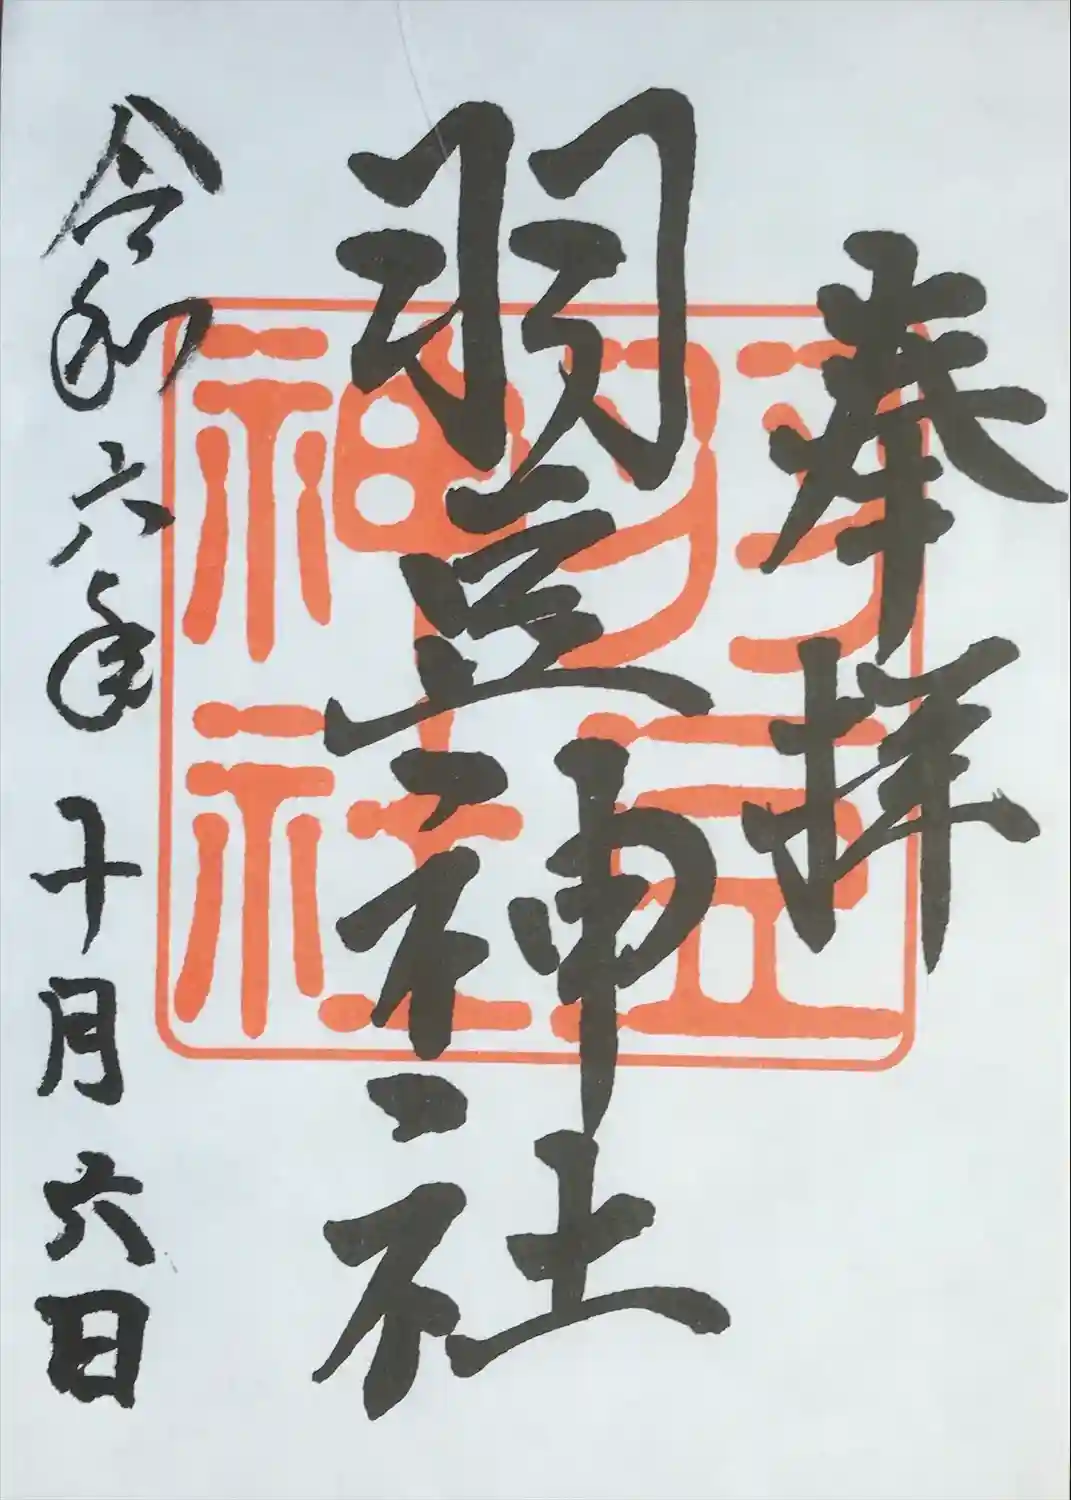 奉拝
羽豆神社
令和六年十月六日
羽豆神社